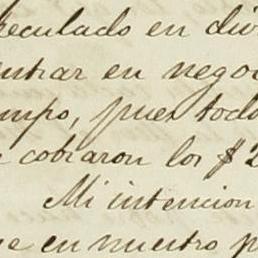 peculado en div
entrar en negoc
mpo, pues todo
e cobraron los $2
Mi intencion
ue en nuestro p